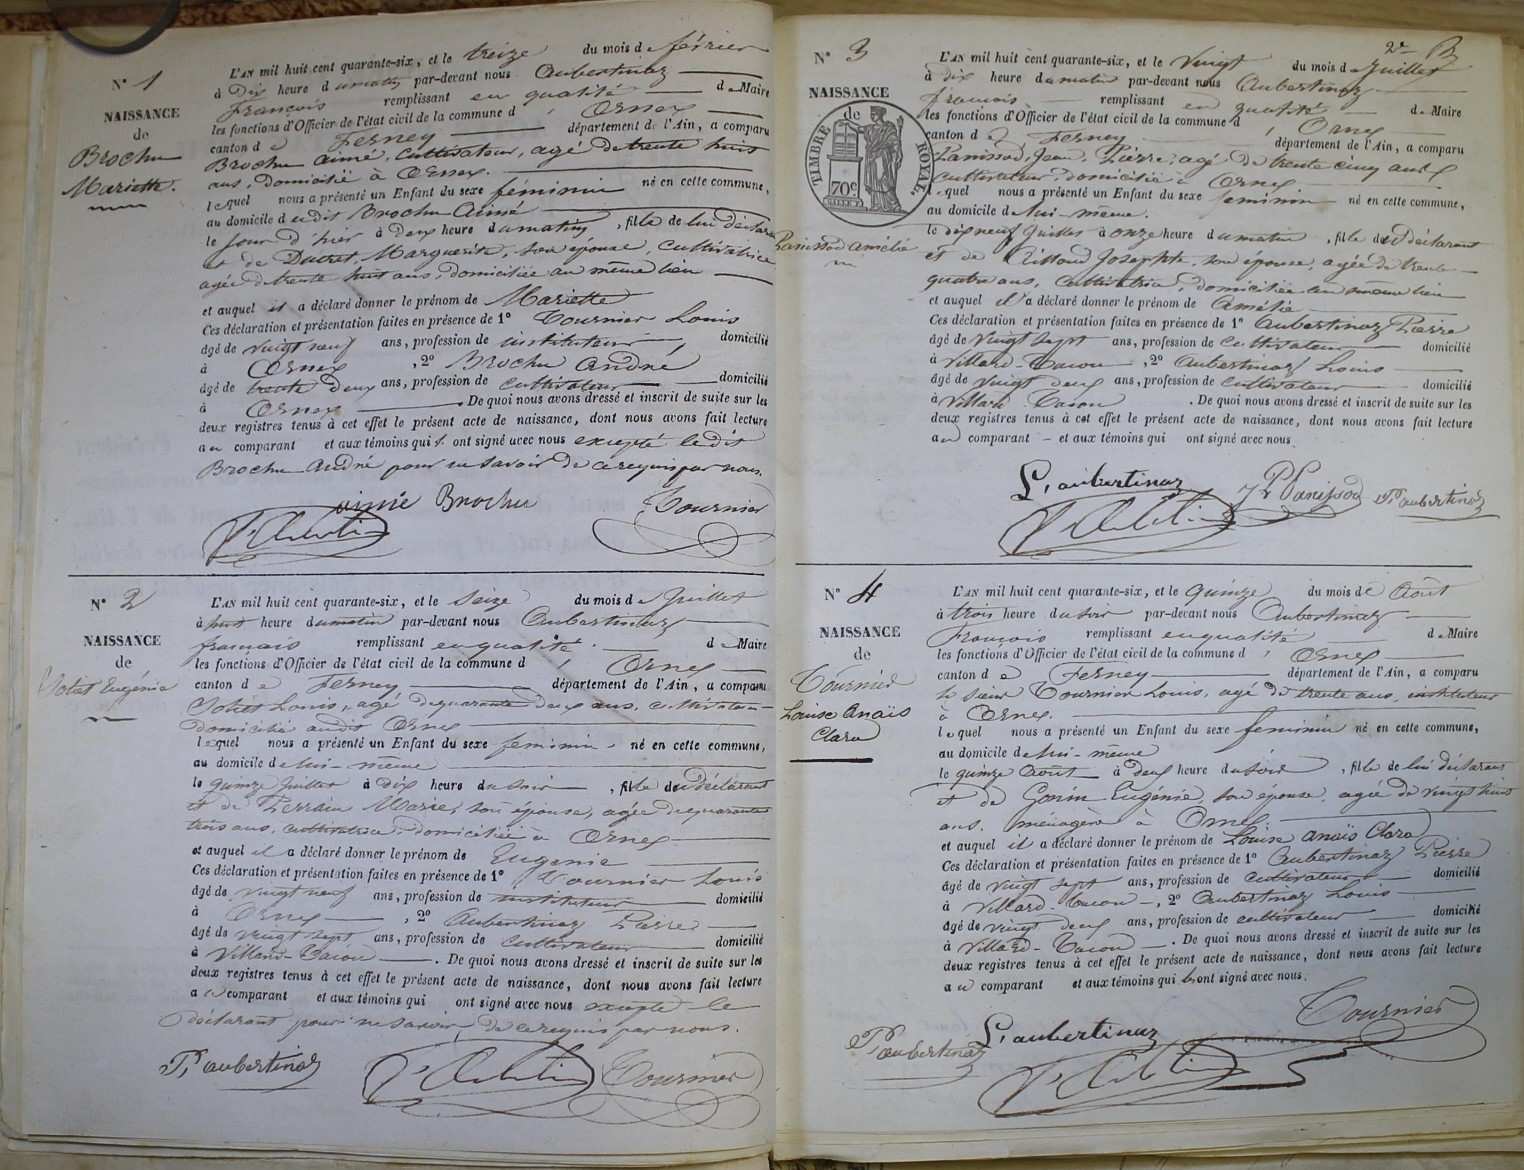 N° 1
NAISSANCE
de
Brochu
Mariette.
L'AN mil huit cent quarante-six, et le treize du mois de février
à Dix heure du matin par-devant nous Aubertinaz
François remplissant en qualité de Maire
les fonctions d'Officier de l'état civil de la commune d' Ornex
canton de Ferney département de l'Ain, a comparu
Brochu aimé, cultivateur, agé de trente huit
ans, domicilié à Ornex.
lequel nous a présenté un Enfant du sexe féminin né en cette commune,
au domicile dudit Brochu Aimé
le jour d'hier à Deux heure du matin, fille de lui déclarant
et de Ducret, Marguerite, son épouse, cultivatrice
agée de trente huit ans, domiciliée au même lieu
et auquel il a déclaré donner le prénom de Mariette
Ces déclaration et présentation faites en présence de 1° Tournier Louis
âgé de vingt neuf ans, profession de instituteur, domicilié
à Ornex, 2° Brochu André
âgé de trente deux ans, profession de cultivateur domicilié
à Ornex. De quoi nous avons dressé et inscrit de suite sur les
deux registres tenus à cet effet le présent acte de naissance, dont nous avons fait lecture
au comparant et aux témoins qui ont signé avec nous excepté le dit
Brochu André pour ne savoir de ce requis par nous.
aimé Brochu Tournier
N° 2
NAISSANCE
de
Jotet Eugénie
L'AN mil huit cent quarante-six, et le Seize du mois de Juillet
à huit heure du matin par-devant nous Aubertinaz
français remplissant en qualité de Maire
les fonctions d'Officier de l'état civil de la commune d' Ornex
canton de Ferney département de l'Ain, a comparu
Jotet Louis, agé de quarante deux ans, cultivateur
domicilié audit Ornex
lequel nous a présenté un Enfant du sexe feminin né en cette commune,
au domicile de lui-même
le quinze Juillet à dix heure du soir, fille du déclarant
et de Perrain Marie, son épouse, agée de quarante
trois ans, cultivatrice, domiciliée à Ornex
et auquel il a déclaré donner le prénom de Eugénie
Ces déclaration et présentation faites en présence de 1° Tournier Louis
âgé de vingt neuf ans, profession de instituteur domicilié
à Ornex, 2° Aubertinaz Pierre
âgé de vingt sept ans, profession de cultivateur domicilié
à Villard-Tacon. De quoi nous avons dressé et inscrit de suite sur les
deux registres tenus à cet effet le présent acte de naissance, dont nous avons fait lecture
au comparant et aux témoins qui ont signé avec nous excepté le
déclarant pour ne savoir, de ce requis par nous.
P. aubertinaz Tournier
2e
N° 3
NAISSANCE
de
TIMBRE ROYAL.
70c
Panissod Amélie
L'AN mil huit cent quarante-six, et le vingt du mois de Juillet
à dix heure du matin par-devant nous Aubertinaz
françois remplissant en qualité de Maire
les fonctions d'Officier de l'état civil de la commune d' Ornex
canton de Ferney département de l'Ain, a comparu
Panissod, Jean, Pierre, agé de trente cinq ans
cultivateur, domicilié à Ornex
lequel nous a présenté un Enfant du sexe feminin né en cette commune,
au domicile de lui-même.
le dix neuf Juillet à onze heure du matin, fille du déclarant
et de Josephte, son épouse, agée de trente
quatre ans, cultivatrice, domiciliée au même lieu
et auquel il a déclaré donner le prénom de Amélie
Ces déclaration et présentation faites en présence de 1° Aubertinaz Pierre
âgé de vingt sept ans, profession de cultivateur domicilié
à Villard-Tacon, 2° Aubertinaz Louis
âgé de vingt deux ans, profession de cultivateur domicilié
à Villard-Tacon. De quoi nous avons dressé et inscrit de suite sur les
deux registres tenus à cet effet le présent acte de naissance, dont nous avons fait lecture
au comparant et aux témoins qui ont signé avec nous.
L. aubertinaz JP Panissod P. aubertinaz
N° 4
NAISSANCE
de
Tournier
Louise Anaïs
Clara
L'AN mil huit cent quarante-six, et le quinze du mois de Août
à trois heure du soir par-devant nous Aubertinaz
François remplissant en qualité de Maire
les fonctions d'Officier de l'état civil de la commune d' Ornex
canton de Ferney département de l'Ain, a comparu
le sieur Tournier Louis, agé de trente ans, instituteur
à Ornex.
lequel nous a présenté un Enfant du sexe feminin né en cette commune,
au domicile de lui-même
le quinze Août à deux heure du soir, fille de lui déclarant
et de Gonin Eugénie, son épouse, agée de vingt huit
ans, ménagère à Ornex
et auquel il a déclaré donner le prénom de Louise Anaïs Clara
Ces déclaration et présentation faites en présence de 1° Aubertinaz Pierre
âgé de vingt sept ans, profession de cultivateur domicilié
à Villard-Tacon, 2° Aubertinaz Louis
âgé de vingt deux ans, profession de cultivateur domicilié
à Villard-Tacon. De quoi nous avons dressé et inscrit de suite sur les
deux registres tenus à cet effet le présent acte de naissance, dont nous avons fait lecture
au comparant et aux témoins qui ont signé avec nous.
P. aubertinaz L. aubertinaz Tournier